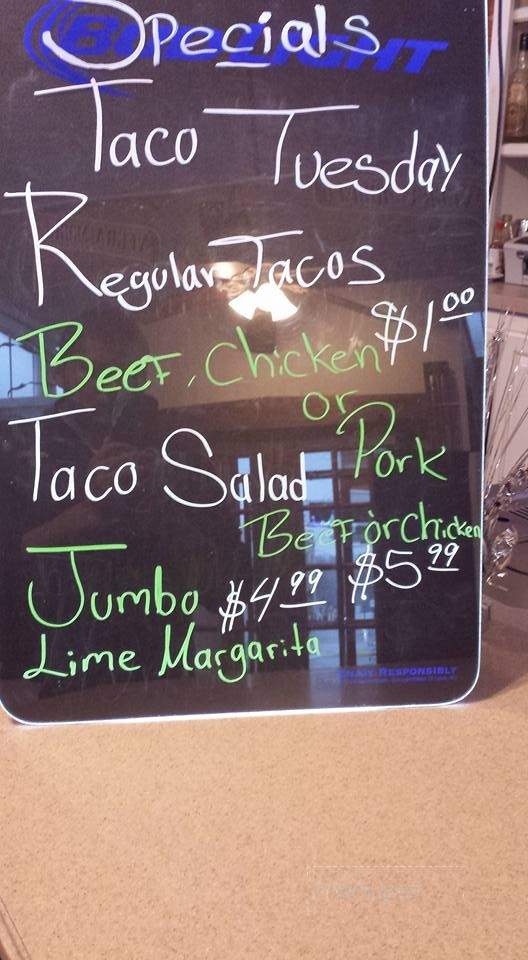 Specials
BUD LIGHT
Taco Tuesday
Regular Tacos
$1.00
Beef, Chicken
or
Pork
Taco Salad
Beef or Chicken
$5.99
Jumbo $4.99
Lime Margarita
ENJOY RESPONSIBLY